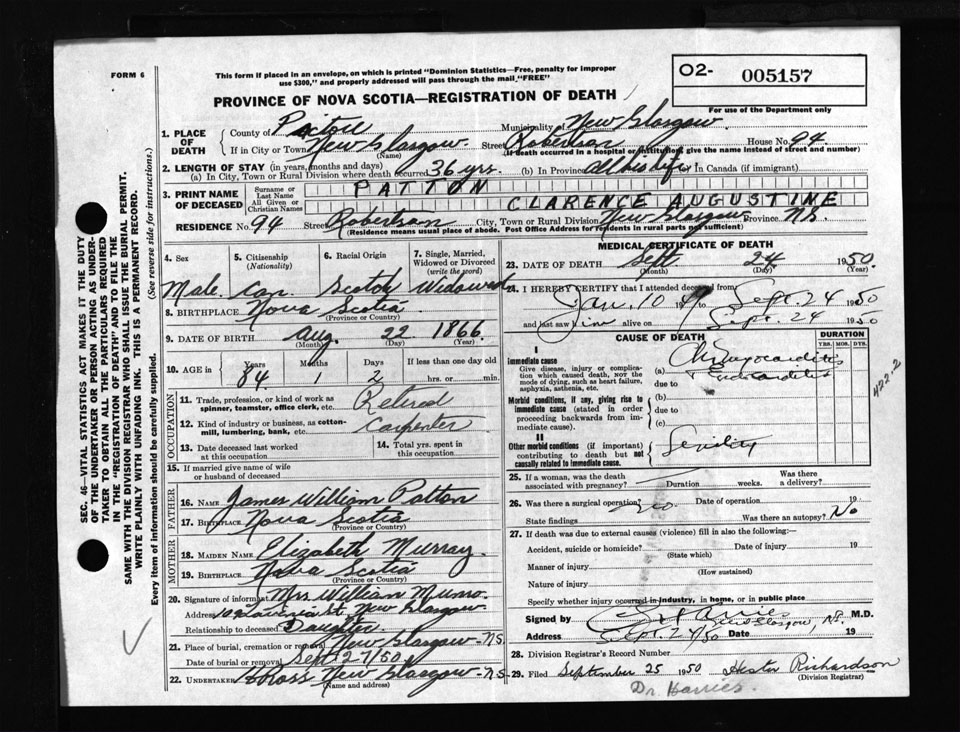 FORM 6
This form if placed in an envelope, on which is printed "Dominion Statistics—Free, penalty for improper
use $300," and properly addressed will pass through the mail, "FREE"
O2- 005157
PROVINCE OF NOVA SCOTIA—REGISTRATION OF DEATH
For use of the Department only
1. PLACE OF DEATH
County of Pictou Municipality of New Glasgow
If in City or Town New Glasgow Street Robertson House No. 94.
(Name) (If death occurred in a hospital or institution, give the name instead of street and number)
2. LENGTH OF STAY (in years, months and days)
(a) In City, Town or Rural Division where death occurred 36 yrs. (b) In Province All his life In Canada (if immigrant)
3. PRINT NAME OF DECEASED
Surname or Last Name PATTON
All Given or Christian Names CLARENCE AUGUSTINE
RESIDENCE No. 94 Street Robertson City, Town or Rural Division New Glasgow Province N.S.
(Residence means usual place of abode. Post Office Address for residents in rural parts not sufficient)
4. Sex
5. Citizenship (Nationality)
6. Racial Origin
7. Single, Married, Widowed or Divorced (write the word)
Male. Can. Scotch Widowed
8. BIRTHPLACE Nova Scotia
(Province or Country)
9. DATE OF BIRTH Aug. 22 1866
(Month) (Day) (Year)
10. AGE in Years Months Days If less than one day old
84 1 2 hrs. or min.
OCCUPATION
11. Trade, profession or kind of work as spinner, teamster, office clerk, etc. Retired
12. Kind of industry or business, as cotton-mill, lumbering, bank, etc. Carpenter
13. Date deceased last worked at this occupation
14. Total yrs. spent in this occupation
15. If married give name of wife or husband of deceased
FATHER
16. NAME James William Patton
17. BIRTHPLACE Nova Scotia
(Province or Country)
MOTHER
18. MAIDEN NAME Elizabeth Murray.
19. BIRTHPLACE Nova Scotia
(Province or Country)
20. Signature of informant Mrs William Munro.
Address St. New Glasgow
Relationship to deceased Daughter
21. Place of burial, cremation or removal New Glasgow - N.S.
Date of burial or removal Sept 27/50
22. UNDERTAKER Ross New Glasgow - N.S.
(Name and address)
MEDICAL CERTIFICATE OF DEATH
23. DATE OF DEATH Sept. 24 1950.
(Month) (Day) (Year)
24. I HEREBY CERTIFY that I attended deceased from:
Jan. 10 Sept. 24 1950
and last saw him alive on Sept. 24 1950
CAUSE OF DEATH
DURATION
YRS. MOS. DYS.
I
Immediate cause
Give disease, injury or complication which caused death, not the mode of dying, such as heart failure, asphyxia, asthenia, etc.
(a) Ch. Myocarditis
due to Endocarditis
Morbid conditions, if any, giving rise to immediate cause (stated in order proceeding backwards from immediate cause).
(b)
due to
(c)
II
Other morbid conditions (if important) contributing to death but not causally related to immediate cause.
Senility
422.2
25. If a woman, was the death associated with pregnancy? Duration weeks. Was there a delivery?
26. Was there a surgical operation? no Date of operation 19
State findings Was there an autopsy? No
27. If death was due to external causes (violence) fill in also the following:—
Accident, suicide or homicide? Date of injury 19
(State which)
Manner of injury
(How sustained)
Nature of injury
Specify whether injury occurred in industry, in home, or in public place
Signed by M.D.
Address New Glasgow, N.S. Date 19
Sept. 24/50
28. Division Registrar's Record Number
29. Filed September 25 1950 Hester Richardson
(Division Registrar)
Dr. Harries.
SEC. 46—VITAL STATISTICS ACT MAKES IT THE DUTY
OF THE UNDERTAKER OR PERSON ACTING AS UNDER-
TAKER TO OBTAIN ALL THE PARTICULARS REQUIRED
IN THE "REGISTRATION OF DEATH" AND TO FILE THE
SAME WITH THE DIVISION REGISTRAR WHO SHALL ISSUE THE BURIAL PERMIT.
WRITE PLAINLY WITH UNFADING INK. THIS IS A PERMANENT RECORD.
Every item of information should be carefully supplied. (See reverse side for instructions.)